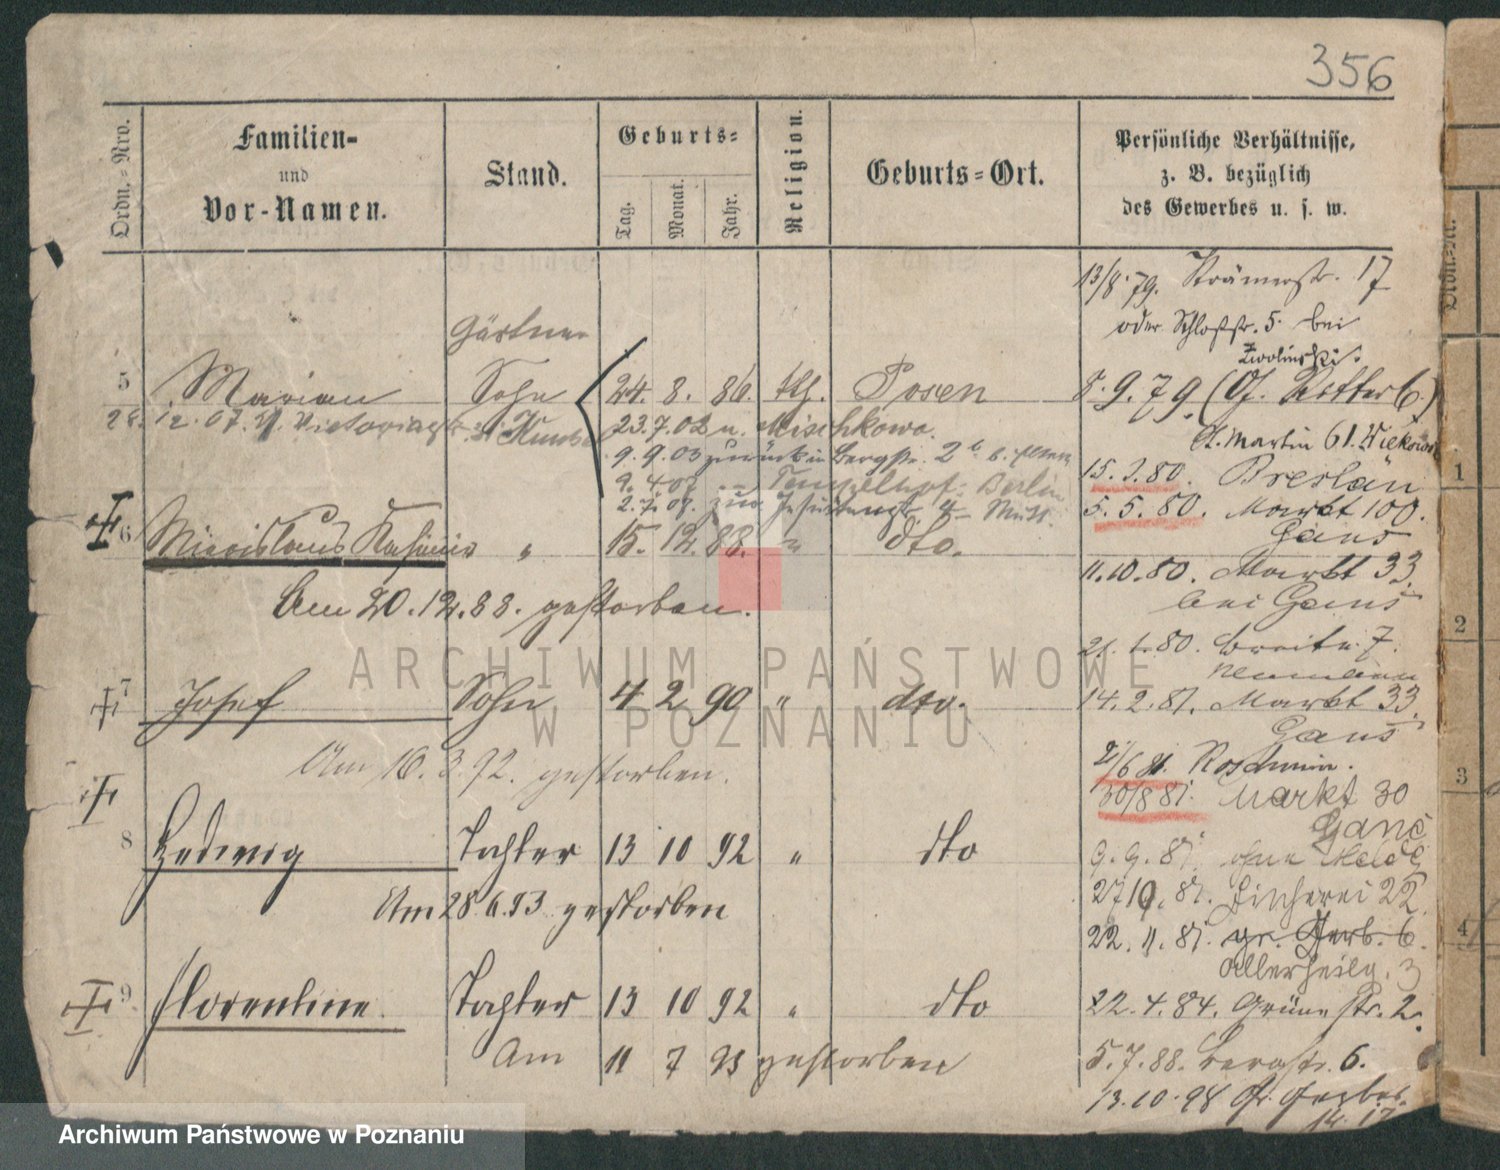 356
Ordn.-Nro.
Familien-
und
Vor-Namen.
Stand.
Geburts-
Tag.
Monat.
Jahr.
Religion.
Geburts-Ort.
Persönliche Verhältnisse,
z. B. bezüglich
des Gewerbes u. s. w.
13/8. 79. Krämerstr. 17
oder Schloßstr. 5. bei
Zwolinski.
Gärtner
5 Marian Sohn 24. 8. 86. kth. Posen
8. 9. 79. (Gr. Ritter 6.)
28. 12. 07. Victoriastr.
23. 7. 02 n. Mischkowo.
St. Martin 61.
9. 9. 03 zurück in Bergstr. 2b b.
15. 3. 80. Breslau
Tempelhof- Berlin
2. 7. 07. zur. Jesuitenstr. 4
5. 5. 80. Markt 100.
Gans
6 Miecislaus Kasimir " 15. 12. 88. " dto.
11. 10. 80. Markt 33.
bei Gans
Am 20. 12. 88. gestorben.
80. Breite 7.
Neumann
7 Josef Sohn 4 2 90 " dto.
14. 2. 81. Markt 33.
Gans
Am 16. 3. 92. gestorben.
2/6 81. Koschmin.
30/8 81. Markt 30
Ganś
8 Hedwig Tochter 13 10 92 " dto
9. 9. 81. ohne Meldg
27 10. 81. Fischerei 22.
Am 28. 6. 93 gestorben
22. 11. 81. gr. Gerb. 6.
Allerheilg. 3
9 Florentine. Tochter 13 10 92 " dto
22. 4. 84. Grüne Str. 2.
Am 11 7 93 gestorben
5. 7. 88. Bergstr. 6.
13. 10. 98 Gr. Gerber-
14. 17
Ordn.-Nr.
1
2
3
4
ARCHIWUM PAŃSTWOWE
W POZNANIU
Archiwum Państwowe w Poznaniu